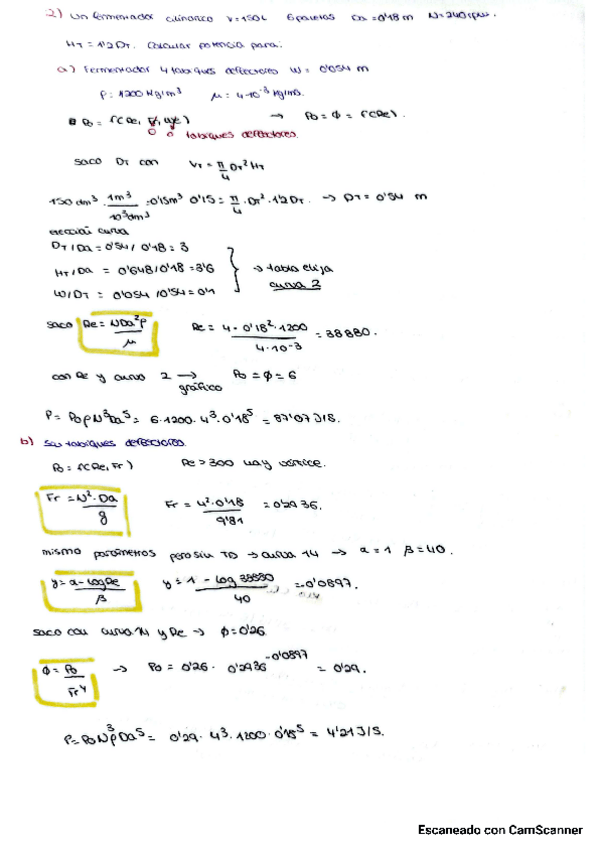 2) Un fermentador cilíndrico V=150L 6 paletas Da=0'18 m N=240 rpm.
HT=1'2 DT. Calcular potencia para:
a) Fermentador 4 tabiques deflectores W= 0'054 m
ρ: 1200 kg/m³ μ= 4·10⁻³ kg/ms.
Po = f(Re, Fr, → Po=ϕ = f(Re).
tabiques deflectores.
saco DT con VT = π/4 DT² HT
150 dm³ · 1m³/10³dm³ = 0'15m³ 0'15 = π/4 · DT² · 1'2 DT. → DT= 0'54 m
curva
DT/Da = 0'54/0'18 = 3
HT/Da = 0'648/0'18 = 3'6 → tabla elija
W/DT = 0'054/0'54 = 0'1 curva 2
saco Re = NDa²ρ/μ Re = 4·0'18²·1200/4·10⁻³ = 38880.
con Re y curva 2 → gráfico Po = ϕ = 6
P= PoρN³Da⁵ = 6·1200·4³·0'18⁵ = 87'07 J/s.
b) sin tabiques deflectores
Po = f(Re, Fr) Re > 300 hay vórtice.
Fr = N²·Da/g Fr = 4²·0'18/9'81 = 0'2936.
mismo parámetros pero sin TD → curva 14 → α=1 β=40.
y = α-logRe/β y = 1-log 38880/40 = -0'0897.
saco con curva 14 y Re → ϕ=0'26.
ϕ = Po/Fr^y → Po = 0'26 · 0'2936^-0'0897 = 0'29.
P=PoN³ρDa⁵ = 0'29·4³·1200·0'18⁵ = 4'21 J/s.
Escaneado con CamScanner